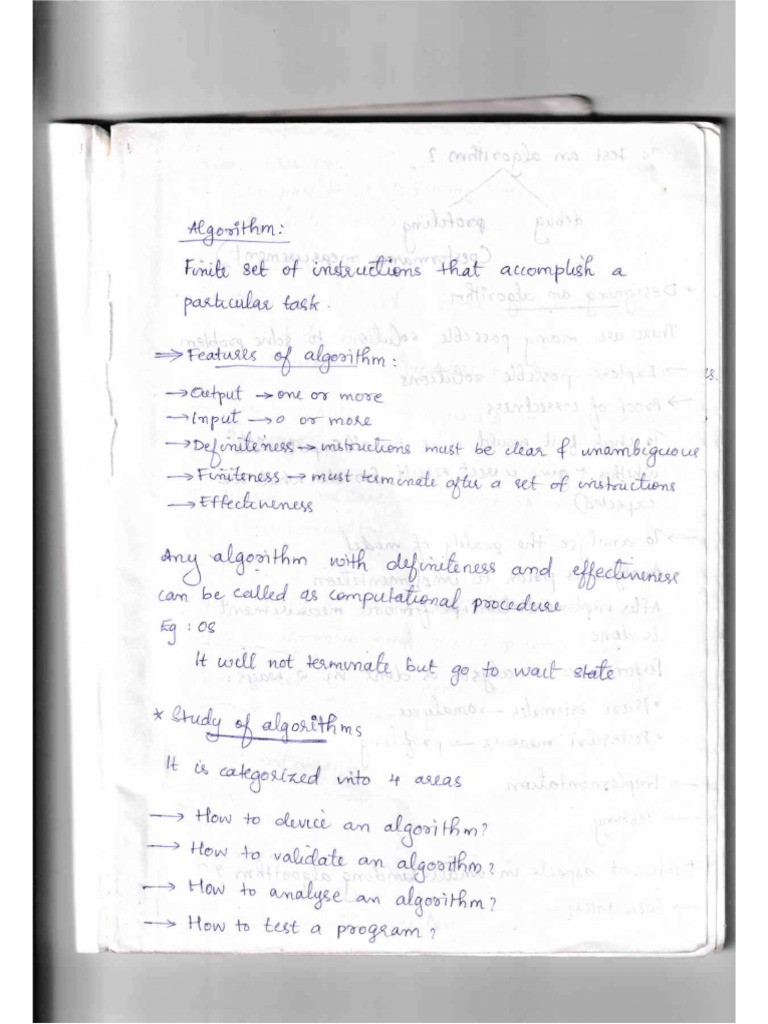 Algorithm:
Finite set of instructions that accomplish a
particular task.
⇒ Features of algorithm:
→ Output → one or more
→ Input → 0 or more
→ Definiteness → instructions must be clear & unambiguous
→ Finiteness → must terminate after a set of instructions
→ Effectiveness
Any algorithm with definiteness and effectiveness
can be called as computational procedure
Eg : OS
It will not terminate but go to wait state
* Study of algorithms
It is categorized into 4 areas
→ How to device an algorithm?
→ How to validate an algorithm?
→ How to analyse an algorithm?
→ How to test a program?